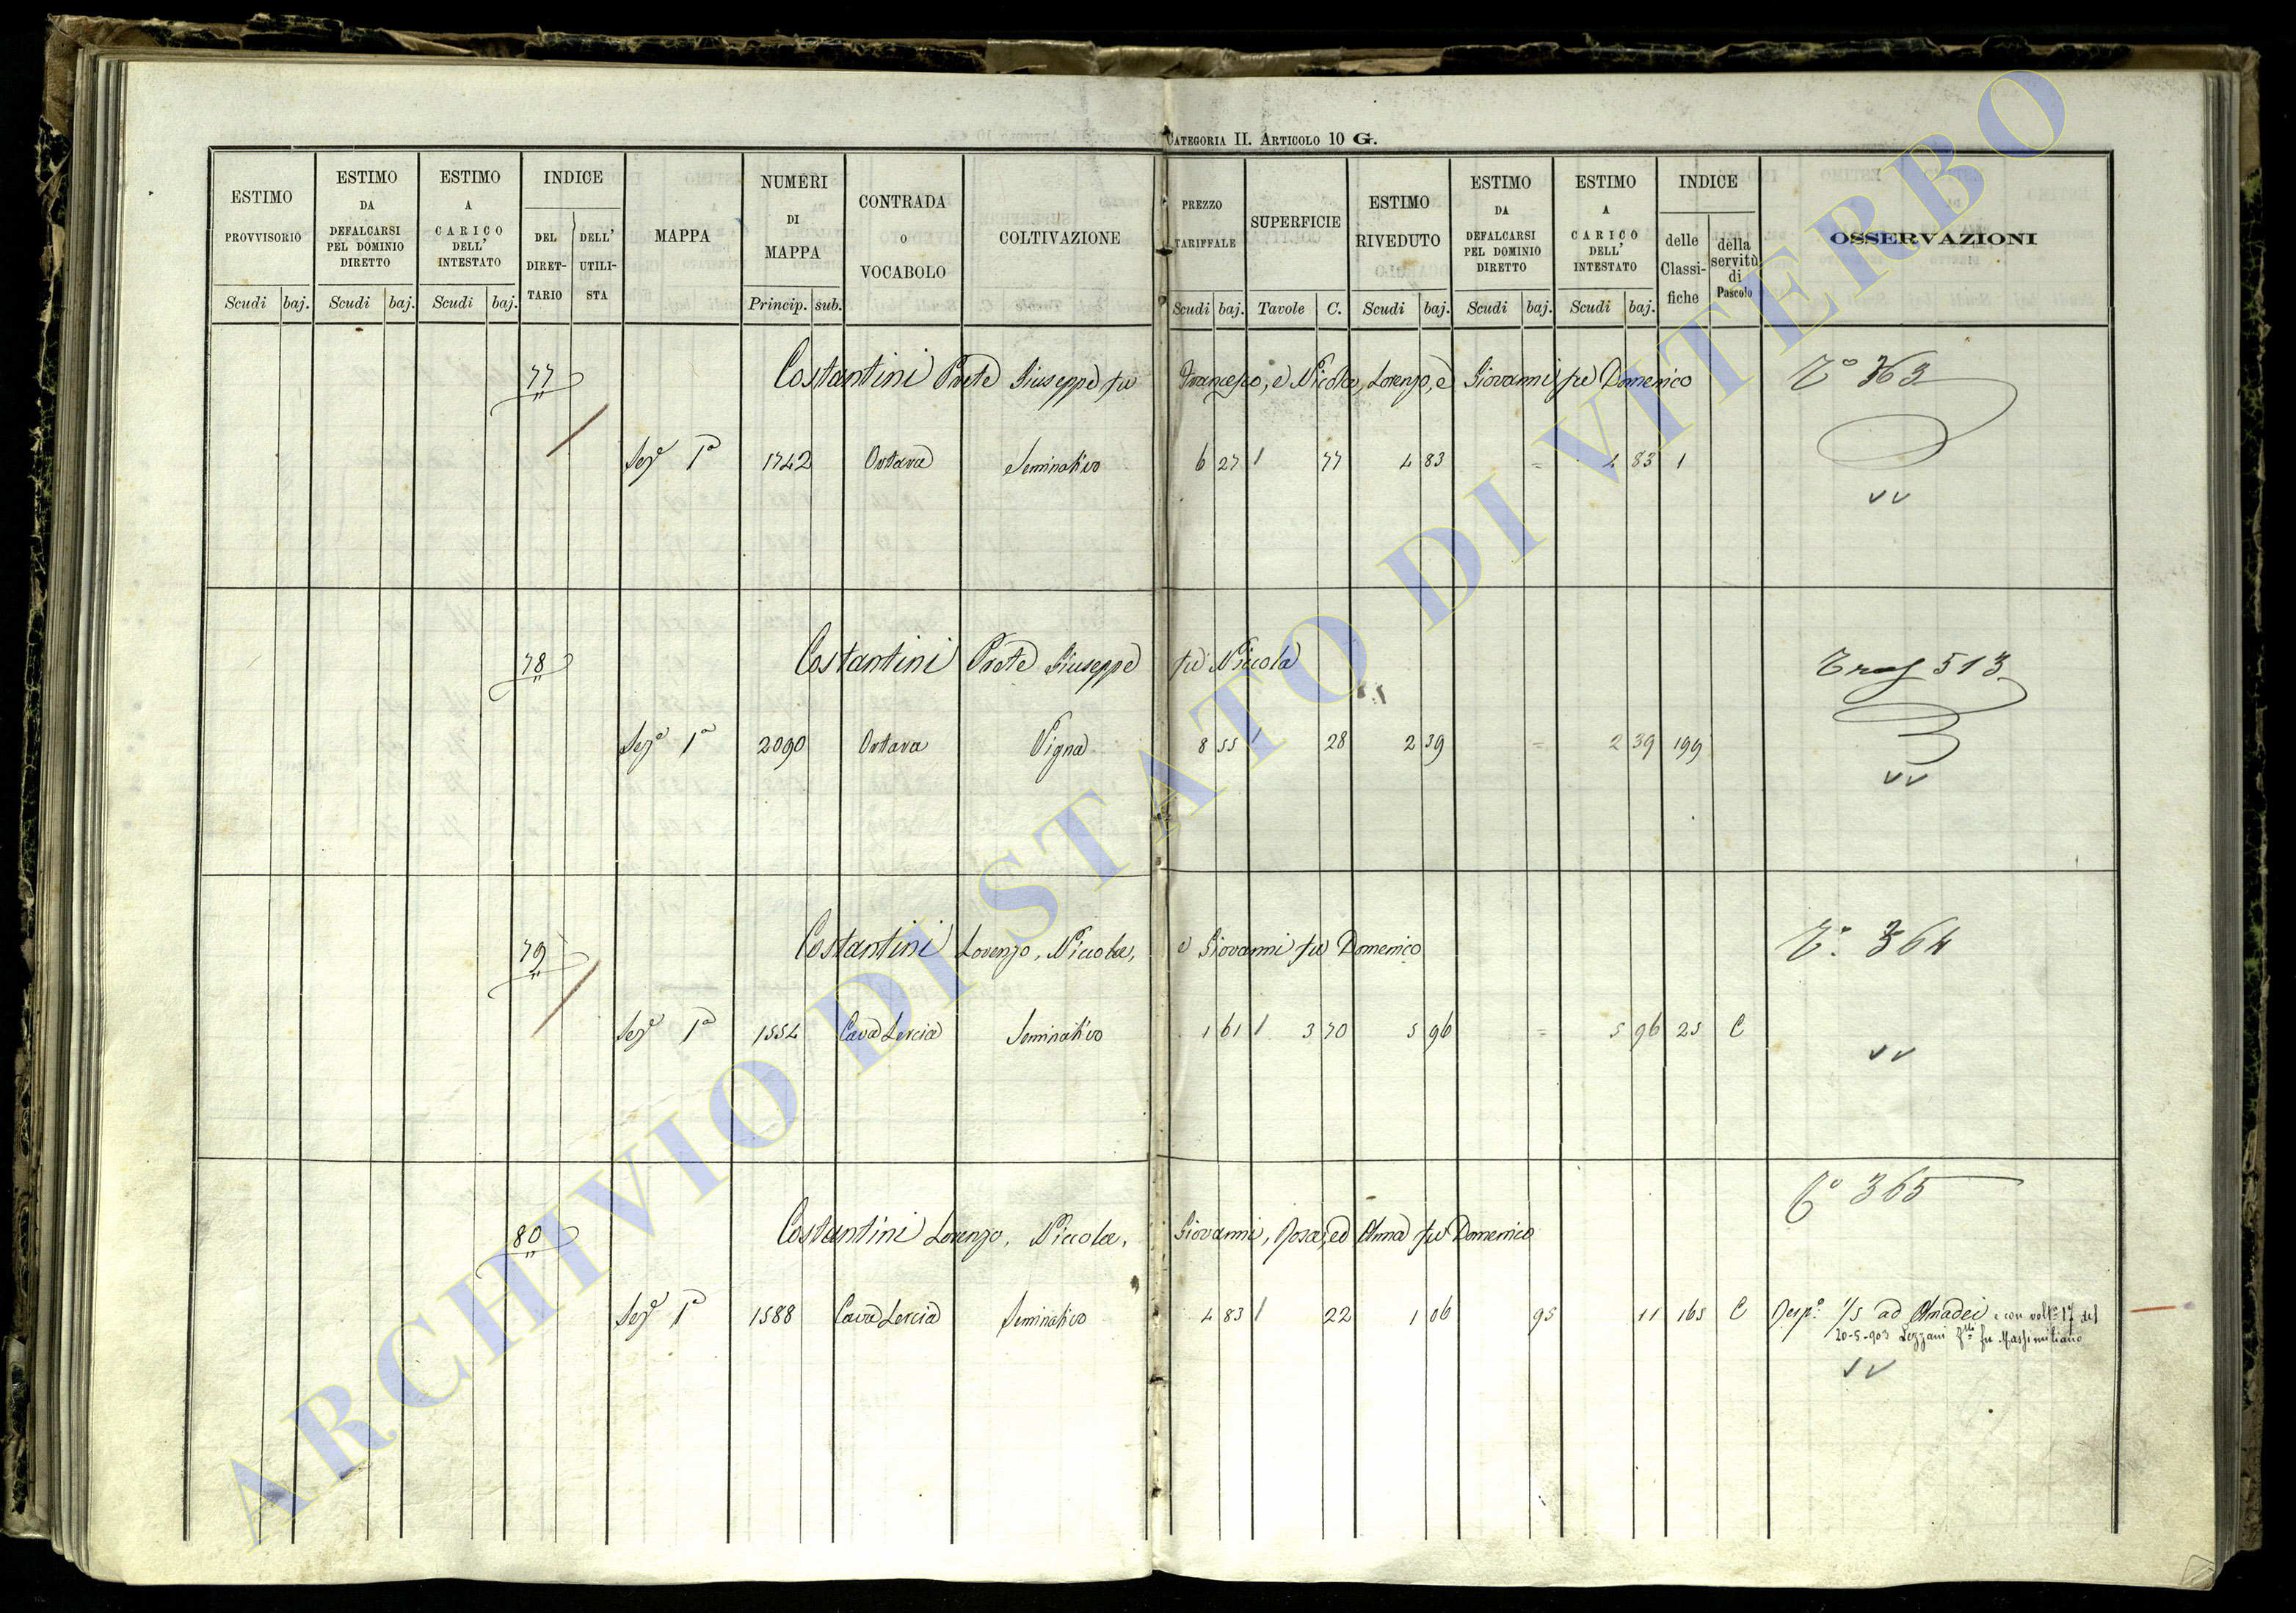 CATEGORIA II. ARTICOLO 10 G.
ESTIMO PROVVISORIO Scudi baj.
ESTIMO DA DEFALCARSI PEL DOMINIO DIRETTO Scudi baj.
ESTIMO A CARICO DELL' INTESTATO Scudi baj.
INDICE DEL DIRET-TARIO DELL' UTILI-STA
MAPPA
NUMERI DI MAPPA Princip. sub.
CONTRADA O VOCABOLO
COLTIVAZIONE
PREZZO TARIFFALE Scudi baj.
SUPERFICIE Tavole C.
ESTIMO RIVEDUTO Scudi baj.
ESTIMO DA DEFALCARSI PEL DOMINIO DIRETTO Scudi baj.
ESTIMO A CARICO DELL' INTESTATO Scudi baj.
INDICE delle Classi-fiche della servitù di Pascolo
OSSERVAZIONI
77 Costantini Prete Giuseppe fu Francesco, e Nicola, Lorenzo, e Giovanni fu Domenico Tº 363
Sezº 1ª 1742 Ortara Seminativo 6 27 1 77 4 83 = 4 83 1
vv
78 Costantini Prete Giuseppe fu Niccola Tras 513
Sezº 1ª 2090 Ortara Vigna 8 55 1 28 2 39 = 2 39 199
vv
79 Costantini Lorenzo, Niccola, e Giovanni fu Domenico Tº 364
Sezº 1ª 1554 Cava Lercia Seminativo 1 61 1 3 70 5 96 = 5 96 25 C
vv
80 Costantini Lorenzo, Niccola, Giovanni, Rosa, ed Anna fu Domenico Tº 365
Sezº 1ª 1588 Cava Lercia Seminativo 4 83 1 22 1 06 95 11 165 C Respº 1/5 ad Amadei e con voltª 17 del
20-5-903 Lezzani fu Massimiliano
vv
ARCHIVIO DI STATO DI VITERBO